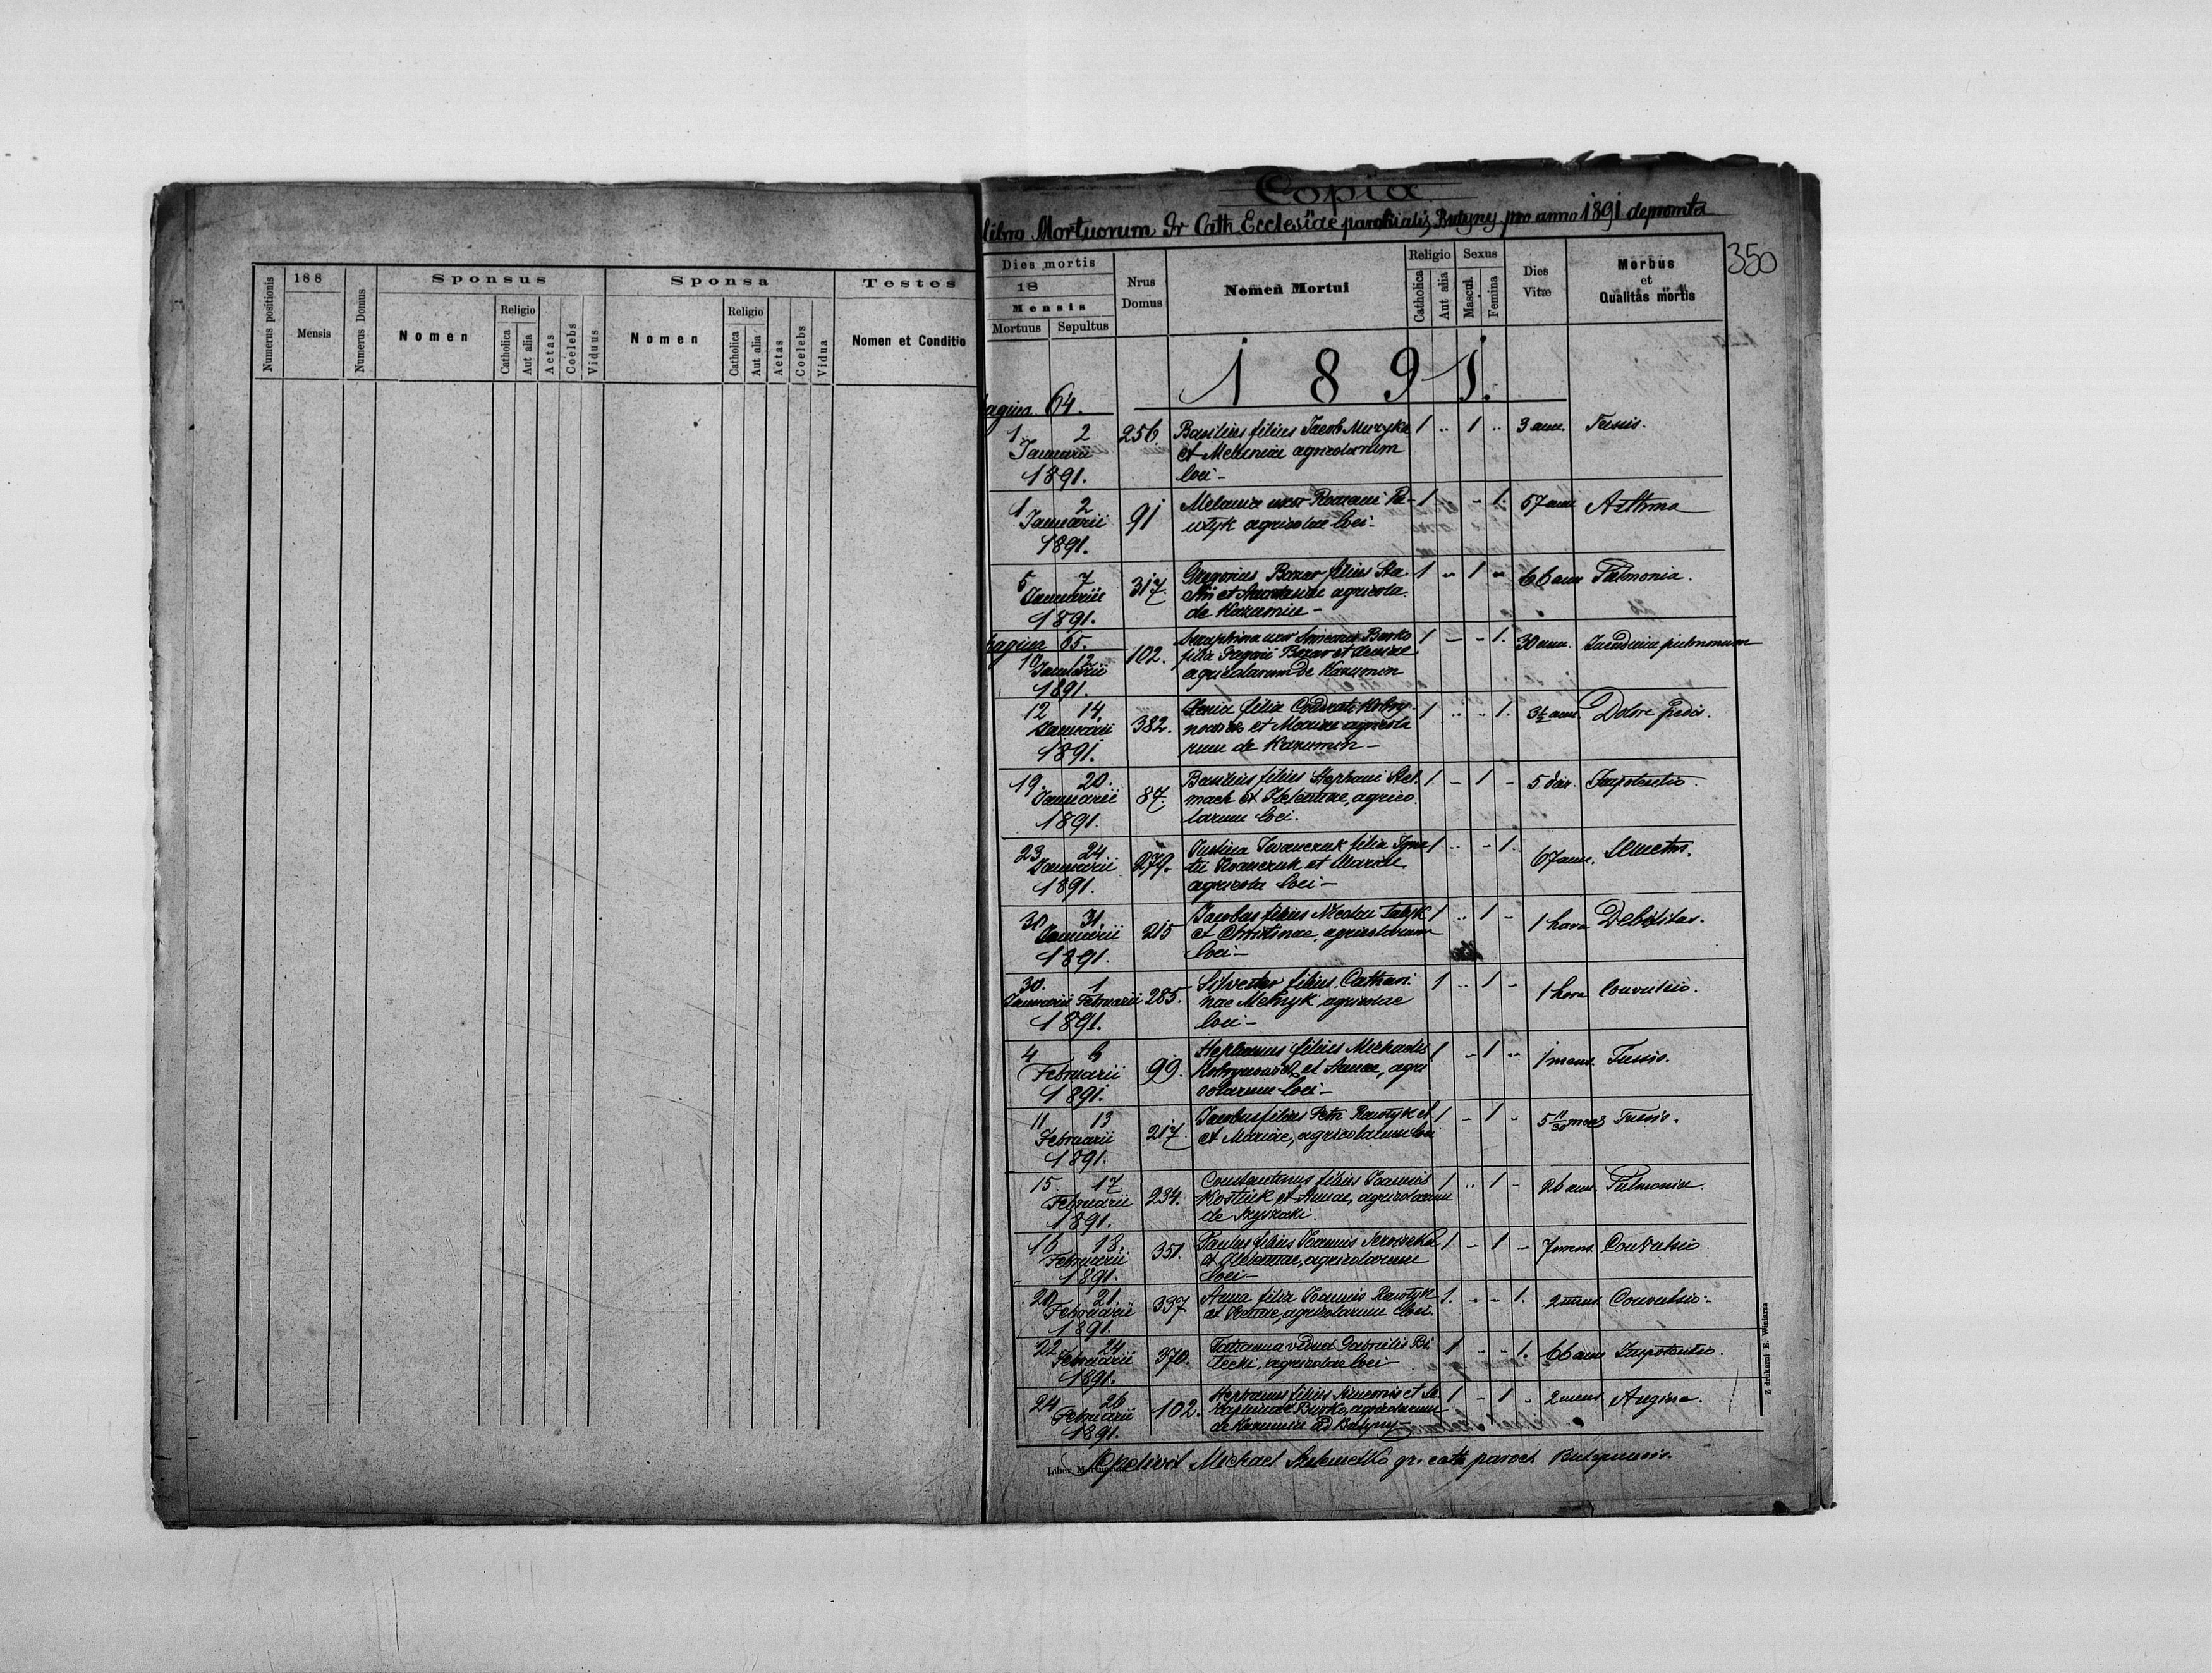 Numerus positionis
188
Mensis
Numerus Domus
Sponsus
Nomen
Religio
Catholica
Aut alia
Aetas
Coelebs
Viduus
Sponsa
Nomen
Religio
Catholica
Aut alia
Aetas
Coelebs
Vidua
Testes
Nomen et Conditio
Copia
libro Mortuorum Gr Cath Ecclesiae parochialis Butyny pro anno 1891 deprompta
350
Dies mortis
18
Mensis
Mortuus Sepultus
Nrus
Domus
Nomen Mortui
Religio
Catholica
Aut alia
Sexus
Mascul.
Femina
Dies
Vitæ
Morbus
et
Qualitas mortis
1891.
pagina 64.
1 2 256. Basilius filius Jacob Muzyka 1 .. 1 .. 3 ann. Tussis.
Januarii et Melaniae agricolarum
1891. loci -
1 2 91 Melania uxor Romani 1 - 1. 67 ann Asthma
Januarii agricolae loci -
1891.
5 7 317. Gregorius Bazar filius 1 1 66 ann Pulmonia.
Januarii et Anastasiae agricola
1891. de Kazumin -
pagina 65.
10 12 102. Seraphina uxor Simeonis Burko 1 - - 1. 30 ann. pulmonum
Januarii filia Gregorii Bazar et
1891. agricolarum de Kazumin
12 14 382. Xenia filia 1 .. - 1. 3½ ann. Dolore pedis.
Januarii et Mariae agricola
1891. rum de Kazumin -
19 20. 87. Basilius filius Stephani Stel 1 - 1 - 5 dier. Impotentia.
Januarii mach et Helenae, agrico
1891. larum loci.
23 24 279. Justina Iwanczuk filia Igna 1 .. - 1. 67 ann. Senectus.
Januarii tii Iwanczuk et Mariae
1891. agricola loci -
30 31. 215 Jacobus filius Nicolai 1 .. 1 - 1 hora Debilitas.
Januarii et Christinae, agricolarum
1891. loci -
30. 1 285. Silvester filius Cathari 1 .. 1 - 1 hora Convulsio.
Januarii Februarii nae Melnyk agricolae
1891. loci -
4 6 99. Stephanus filius Michaelis 1 1 1 mens. Tussis.
Februarii et Annae, agri
1891. colarum loci -
11 13 217. Jacobus filius Petri Rawlyk et 1 - 1 - 5 11/30 mens Tussis.
Februarii et Mariae, agricolarum loci
1891.
15 17 234. Constantinus filius Joannis 1 .. 1 - 26 ann. Pulmonia.
Februarii Kostiuk et Annae, agricolarum
1891. de Szyszaki.
16 18. 351. Paulus filius Joannis 1 - 1 - 7 mens. Convulsio.
Februarii et Helenae, agricolarum
1891. loci -
20 21. 337 Anna filia Joannis Rawlyk 1. - - 1. 2 mens Convulsio -
Februarii et Annae, agricolarum loci.
1891.
22 24 370. Tatianna vidua Gabrielis Bi 1 - - 1. 66 ann Impotentia.
Februarii lecki, agricolae loci -
1891.
24 26 102. Stephanus filius Simeonis et Se 1 - 1 - 2 mens Angina.
Februarii raphinae Burko, agricolarum
1891. de Kazumin ad Butyny -
Liber
Michael gr. cath. paroch Butynensis.
Z drukarni E. Winiarza